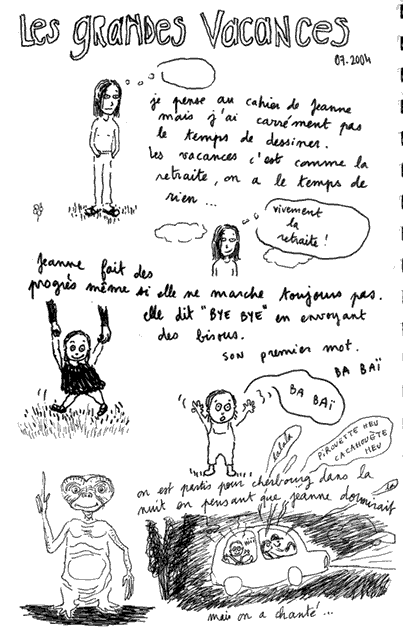 Les grandes Vacances
07.2004
je pense au cahier de Jeanne
mais j'ai carrément pas
le temps de dessiner.
les vacances c'est comme la
retraite, on a le temps de
rien ...
vivement
la
retraite !
Jeanne fait des
progrès même si elle ne marche toujours pas.
elle dit "BYE BYE" en envoyant
des bisous.
son premier mot.
BA BAÏ
BA
BAÏ
lalala
PIROUETTE HEU
CACAHOUÈTE
HEU
on est partis pour cherbourg dans la
nuit en pensant que jeanne dormirait
mais on a chanté ...